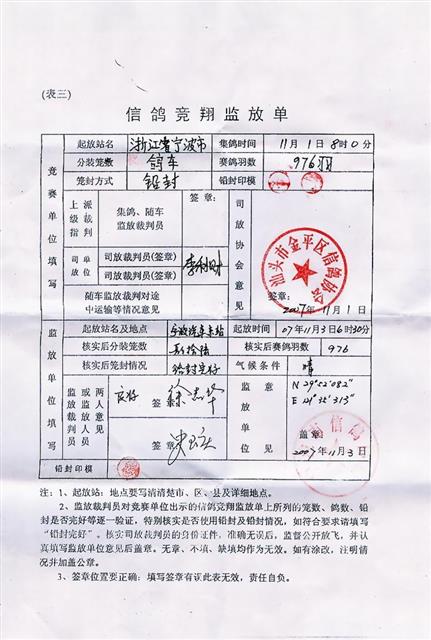 (表三)
信鸽竞翔监放单
竞赛单位填写
起放站名 浙江省宁波市 集鸽时间 11月1日8时0分
分装笼数 鸽车 赛鸽羽数 976羽
笼封方式 铅封 铅封印模
上级指派裁判
集鸽、随车监放裁判员
签章:
司放单位
司放裁判员(签章) 李利财
司放裁判员(签章)
随车监放裁判对途中运输等情况意见
司放协会意见
汕头市金平区信鸽协会
签章:
2007年11月1日
监放单位填写
起放站名及地点 起放时间 07年11月3日6时30分
核实后分装笼数 核实后赛鸽羽数 976
核实后笼封情况 铅封完好 气候条件 晴
监放裁判员或监放人员两人意见
良好 签章
签章
监放单位意见
N 29°52′082″
E 121°32′313″
信鸽
盖章:
2007年11月3日
铅封印模
注:1、起放站:地点要写清清楚市、区、县及详细地点。
2、监放裁判员对竞赛单位出示的信鸽竞翔监放单上所列的笼数、鸽数、铅
封是否完好等逐一验证,特别核实是否使用铅封及铅封情况,如符合要求请填写
“铅封完好”。核实司放裁判员的身份证件,准确无误后,监督公开放飞,并认
真填写监放单位意见后盖章。无章、不填、缺填均作为无效。如有涂改,注明情
况并加盖公章。
3、签章位置要正确:填写签章有误此表无效,责任自负。